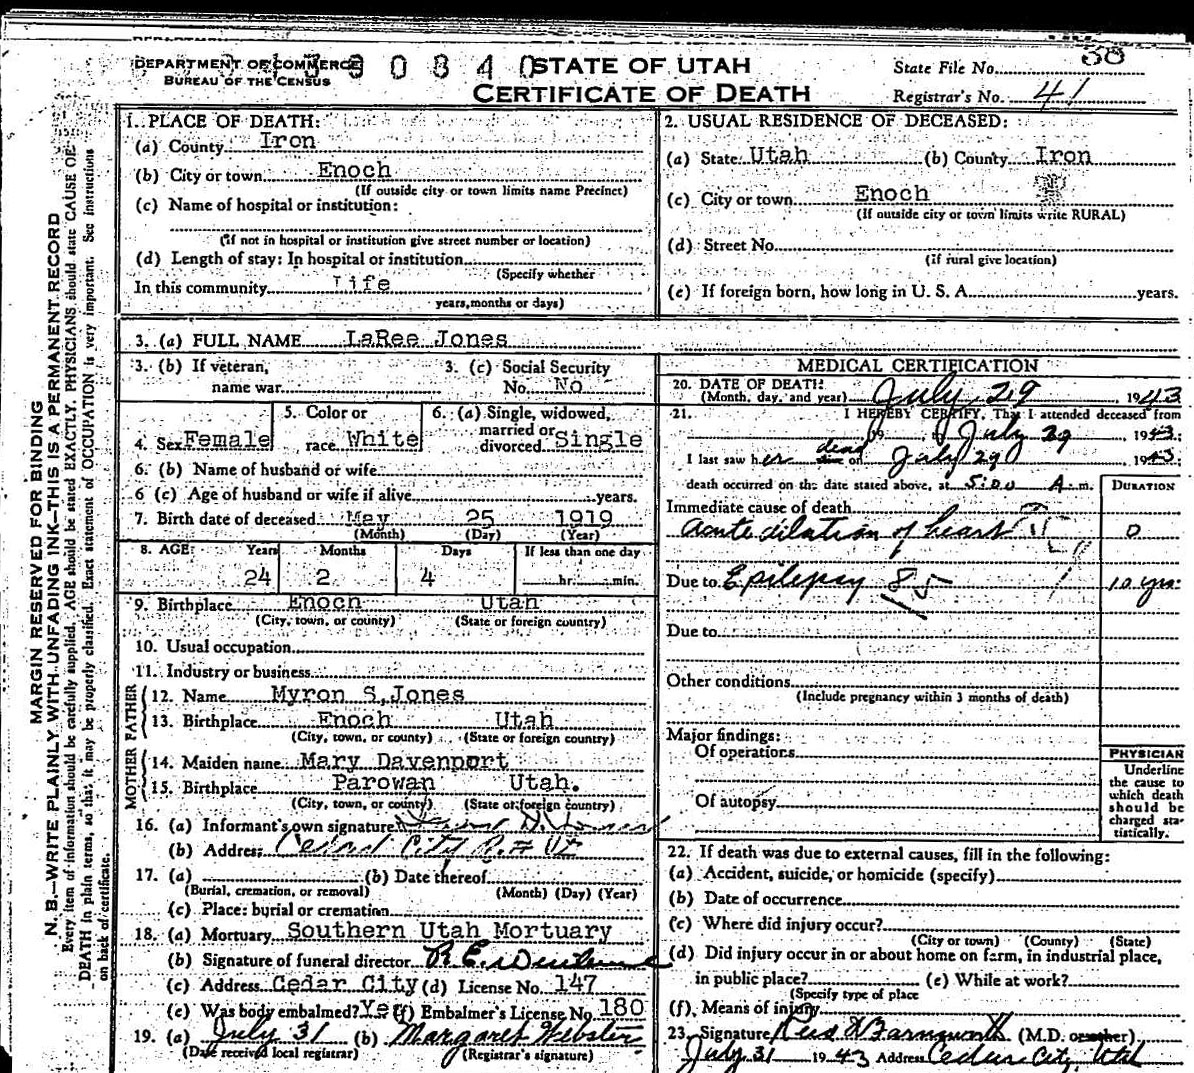 DEPARTMENT OF COMMERCE
BUREAU OF THE CENSUS
0840
STATE OF UTAH
CERTIFICATE OF DEATH
State File No. 38
Registrar's No. 41
MARGIN RESERVED FOR BINDING
N. B.—WRITE PLAINLY, WITH UNFADING INK—THIS IS A PERMANENT RECORD
Every item of information should be carefully supplied. AGE should be stated EXACTLY. PHYSICIANS should state CAUSE OF
DEATH in plain terms, so that it may be properly classified. Exact statement of OCCUPATION is very important. See instructions
on back of certificate.
1. PLACE OF DEATH:
(a) County Iron
(b) City or town Enoch
(If outside city or town limits name Precinct)
(c) Name of hospital or institution:
(If not in hospital or institution give street number or location)
(d) Length of stay: In hospital or institution
(Specify whether
In this community Life
years, months or days)
2. USUAL RESIDENCE OF DECEASED:
(a) State Utah (b) County Iron
(c) City or town Enoch
(If outside city or town limits write RURAL)
(d) Street No.
(If rural give location)
(e) If foreign born, how long in U. S. A. years.
3. (a) FULL NAME LaRee Jones
3. (b) If veteran, 3. (c) Social Security
name war No. No
4. Sex Female 5. Color or race White 6. (a) Single, widowed, married or divorced Single
6. (b) Name of husband or wife
6 (c) Age of husband or wife if alive years.
7. Birth date of deceased May 25 1919
(Month) (Day) (Year)
8. AGE: Years Months Days If less than one day
24 2 4 hr. min.
9. Birthplace Enoch Utah
(City, town, or county) (State or foreign country)
10. Usual occupation
11. Industry or business
FATHER
12. Name Myron S. Jones
13. Birthplace Enoch Utah
(City, town, or county) (State or foreign country)
MOTHER
14. Maiden name Mary Davenport
15. Birthplace Parowan Utah.
(City, town, or county) (State or foreign country)
16. (a) Informant's own signature
(b) Address Cedar City Ut
17. (a) (b) Date thereof
(Burial, cremation, or removal) (Month) (Day) (Year)
(c) Place: burial or cremation
18. (a) Mortuary Southern Utah Mortuary
(b) Signature of funeral director R. E.
(c) Address Cedar City (d) License No. 147
(e) Was body embalmed? Yes (f) Embalmer's License No. 180
19. (a) July 31 (b) Margaret Webster
(Date received local registrar) (Registrar's signature)
MEDICAL CERTIFICATION
20. DATE OF DEATH:
(Month, day, and year) July 29, 1943
21. I HEREBY CERTIFY, That I attended deceased from
19 July 29, 1943;
I last saw her dead on July 29, 1943;
death occurred on the date stated above, at 5:00 A. m.
DURATION
Immediate cause of death
Acute dilation of heart 0
Due to Epilepsy 85 10 yrs.
Due to
Other conditions
(Include pregnancy within 3 months of death)
Major findings:
Of operations
Of autopsy
PHYSICIAN
Underline
the cause to
which death
should be
charged sta-
tistically.
22. If death was due to external causes, fill in the following:
(a) Accident, suicide, or homicide (specify)
(b) Date of occurrence
(c) Where did injury occur?
(City or town) (County) (State)
(d) Did injury occur in or about home on farm, in industrial place,
in public place? (e) While at work?
(Specify type of place
(f) Means of injury
23. Signature Farnsworth (M.D. or other)
July 31 1943 Address Cedar City, Utah